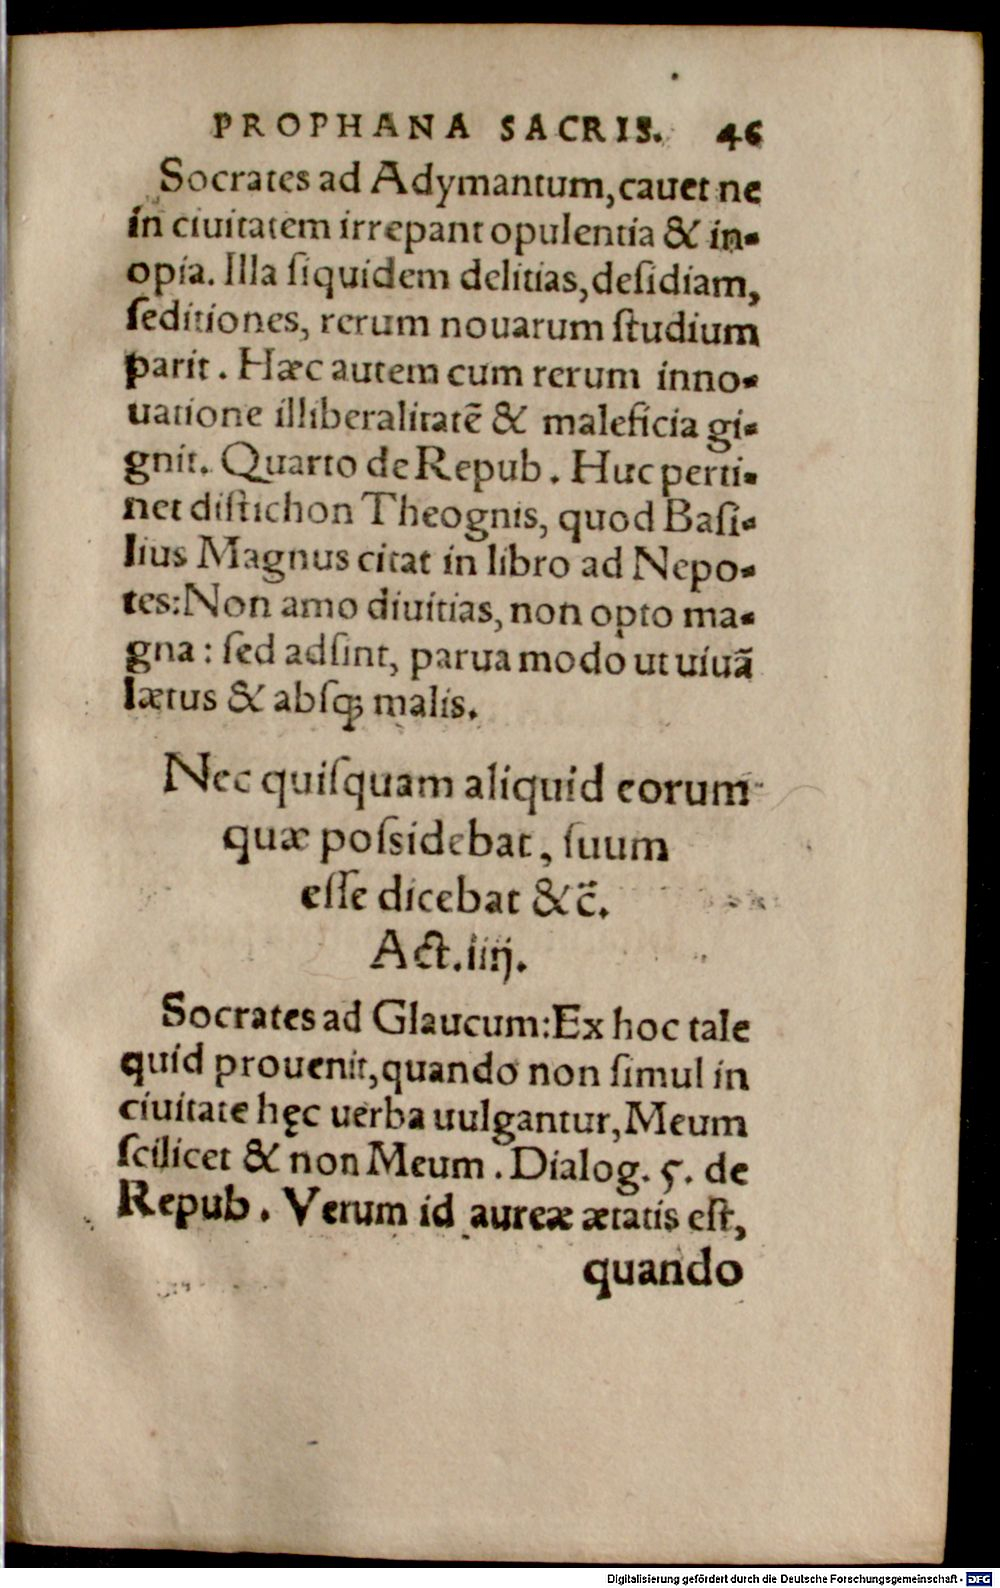 PROPHANA SACRIS. 46
Socrates ad Adymantum, cauet ne
in ciuitatem irrepant opulentia & in-
opia. Illa siquidem delitias, desidiam,
seditiones, rerum nouarum studium
parit. Hæc autem cum rerum inno-
uatione illiberalitatē & maleficia gi-
gnit. Quarto de Repub. Huc perti-
net distichon Theognis, quod Basi-
lius Magnus citat in libro ad Nepo-
tes: Non amo diuitias, non opto ma-
gna: sed adsint, parua modo ut uiuā
lætus & absq; malis.
Nec quisquam aliquid eorum
quæ possidebat, suum
esse dicebat &c̄.
Act. iiij.
Socrates ad Glaucum: Ex hoc tale
quid prouenit, quando non simul in
ciuitate hęc uerba uulgantur, Meum
scilicet & non Meum. Dialog. 5. de
Repub. Verum id aureæ ætatis est,
quando
Digitalisierung gefördert durch die Deutsche Forschungsgemeinschaft - DFG